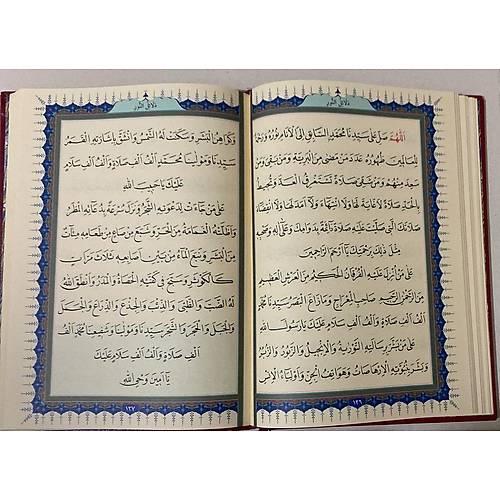 دلائل النور
اَللّٰهُمَّ صَلِّ عَلٰى سَيِّدِنَا مُحَمَّدٍ السَّابِقِ اِلَى الْاَنَامِ نُورُهُ وَرَحْمَةٌ
لِلْعَالَمِينَ ظُهُورُهُ عَدَدَ مَنْ مَضٰى مِنَ الْبَرِيَّةِ وَمَنْ بَقِىَ وَمَنْ
سَعِدَ مِنْهُمْ وَمَنْ شَقِىَ صَلَاةً تَسْتَغْرِقُ الْعَدَّ وَتُحِيطُ
بِالْحَدِّ صَلَاةً لَا غَايَةَ لَهَا وَلَا انْتِهَاءَ وَلَا اَمَدَ لَهَا وَلَا انْقِضَاءَ
صَلَاتَكَ الَّتِى صَلَّيْتَ عَلَيْهِ صَلَاةً دَائِمَةً بِدَوَامِكَ وَعَلٰى اٰلِهِ وَصَحْبِهِ
مِثْلَ ذٰلِكَ بِرَحْمَتِكَ يَا اَرْحَمَ الرَّاحِمِينَ
عَلٰى مَنْ اُنْزِلَ عَلَيْهِ الْفُرْقَانُ الْحَكِيمُ مِنَ الْعَرْشِ الْعَظِيمِ
مِنَ الرَّحْمٰنِ الرَّحِيمِ صَاحِبِ الْمِعْرَاجِ وَمَا زَاغَ الْبَصَرُ سَيِّدِنَا مُحَمَّدٍ
اَلْفُ اَلْفِ صَلَاةٍ وَاَلْفُ اَلْفِ سَلَامٍ عَلَيْكَ يَا رَسُولَ اللّٰهِ
عَلٰى مَنْ بَشَّرَ بِرِسَالَتِهِ التَّوْرٰيةُ وَالْاِنْجِيلُ وَالزَّبُورُ وَالزُّبُرُ
وَبَشَّرَ بِنُبُوَّتِهِ الْاِرْهَاصَاتُ وَهَوَاتِفُ الْجِنِّ وَاَوْلِيَاءُ الْاِنْسِ
١٢٦
دلائل النور
وَكَوَاهِنُ الْبَشَرِ وَسَكَنَتْ لَهُ الشَّمْسُ وَانْشَقَّ بِاِشَارَتِهِ الْقَمَرُ
سَيِّدِنَا وَمَوْلٰينَا مُحَمَّدٍ اَلْفُ اَلْفِ صَلَاةٍ وَاَلْفُ اَلْفِ سَلَامٍ
عَلَيْكَ يَا حَبِيبَ اللّٰهِ
عَلٰى مَنْ جَاءَتْ لِدَعْوَتِهِ الشَّجَرُ وَنَزَلَ سُرْعَةً بِدُعَائِهِ الْمَطَرُ
وَاَظَلَّتْهُ الْغَمَامَةُ مِنَ الْحَرِّ وَشَبِعَ مِنْ صَاعٍ مِنْ طَعَامِهِ مِئَاتٌ
مِنَ الْبَشَرِ وَنَبَعَ الْمَاءُ مِنْ بَيْنِ اَصَابِعِهِ ثَلَاثَ مَرَّاتٍ
كَالْكَوْثَرِ وَسَبَّحَ فِى كَفَّيْهِ الْحَصَاةُ وَالْمَدَرُ وَاَنْطَقَ اللّٰهُ
لَهُ الضَّبَّ وَالظَّبْىَ وَالذِّئْبَ وَالْجِذْعَ وَالذِّرَاعَ وَالْجَمَلَ
وَالْجَبَلَ وَالْحَجَرَ وَالشَّجَرَ سَيِّدِنَا وَمَوْلٰينَا وَشَفِيعِنَا مُحَمَّدٍ اَلْفُ
اَلْفِ صَلَاةٍ وَاَلْفُ اَلْفِ سَلَامٍ عَلَيْكَ
يَا اَمِينَ وَحْىِ اللّٰهِ
١٢٧